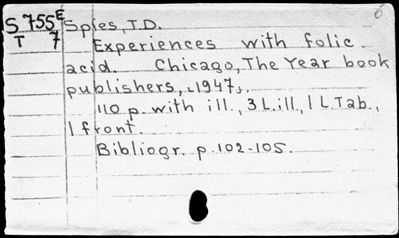 S 755E Spies, T.D.
T 7 Experiences with folic
acid. Chicago, The Year book
publishers, [1947].
110 p. with ill., 3 L. ill., 1 L. Tab.,
1 front.
Bibliogr. p. 102-105.
6